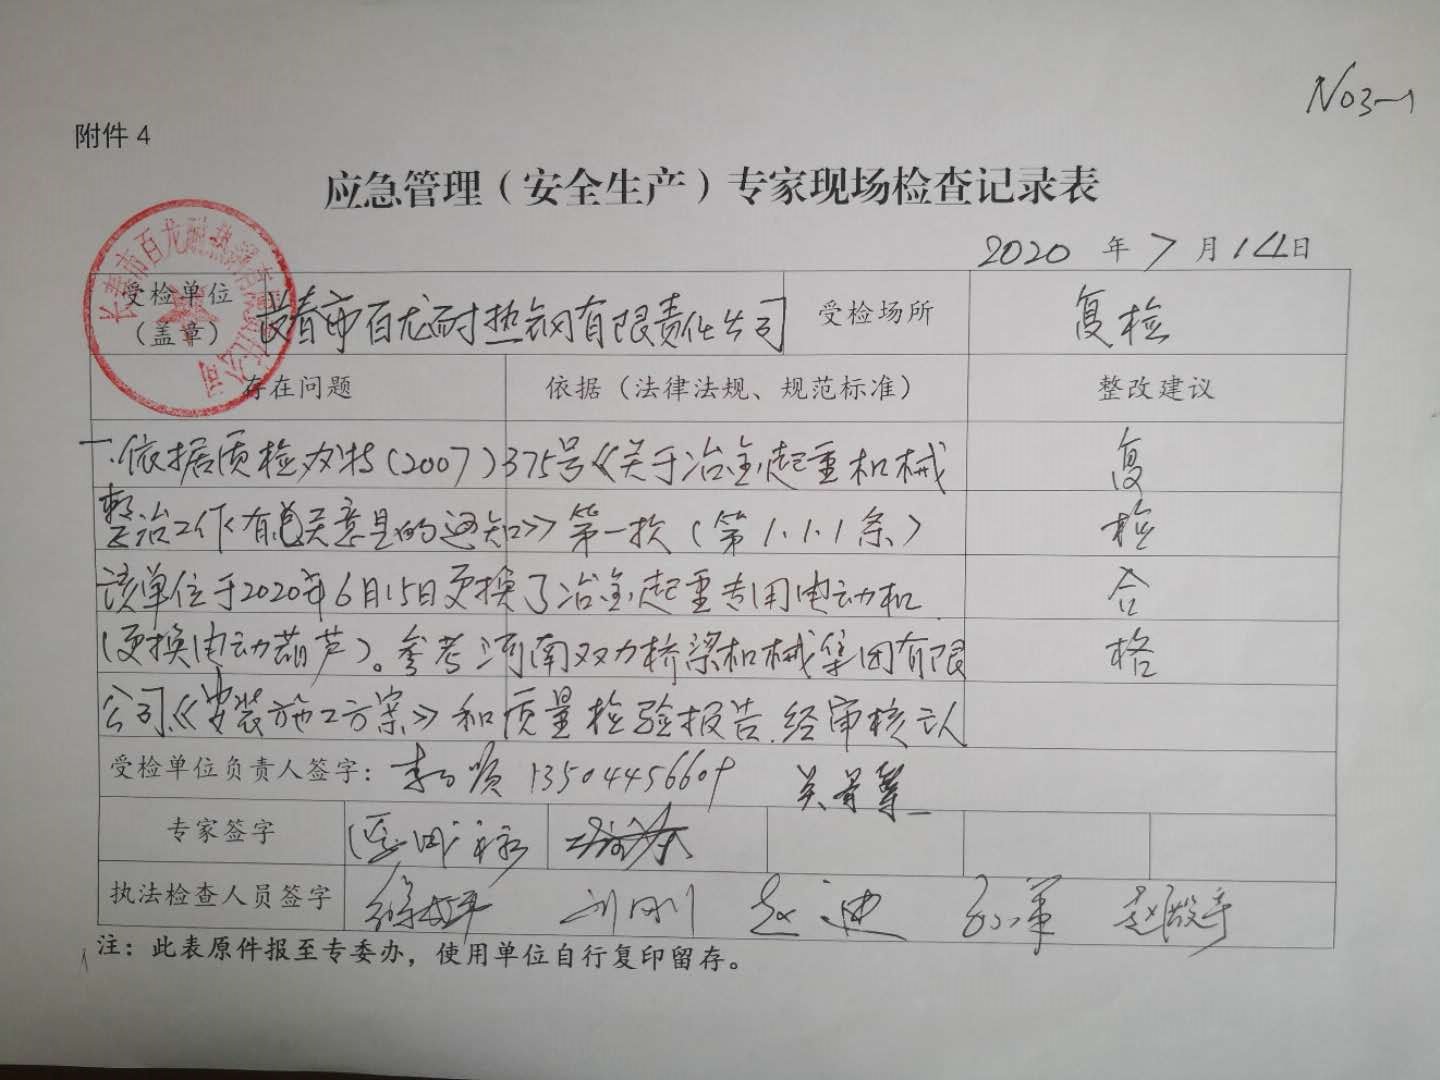 NO3-1
附件 4
应急管理（安全生产）专家现场检查记录表
2020 年 7 月 14 日
受检单位（盖章） 长春市百龙耐热钢有限责任公司 受检场所 复检
长春市百龙耐热钢有限责任公司
存在问题 依据（法律法规、规范标准） 整改建议
一.依据质检办特(2007)375号《关于冶金起重机械 复
整治工作有关意见的通知》第一款（第1.1.1条） 检
该单位于2020年6月15日更换了冶金起重专用电动机 合
(更换电动葫芦)。参考河南双力桥梁机械集团有限 格
公司《安装施工方案》和质量检验报告.经审核认
受检单位负责人签字： 13504456609
专家签字
执法检查人员签字 刘刚 赵迪
注：此表原件报至专委办，使用单位自行复印留存。